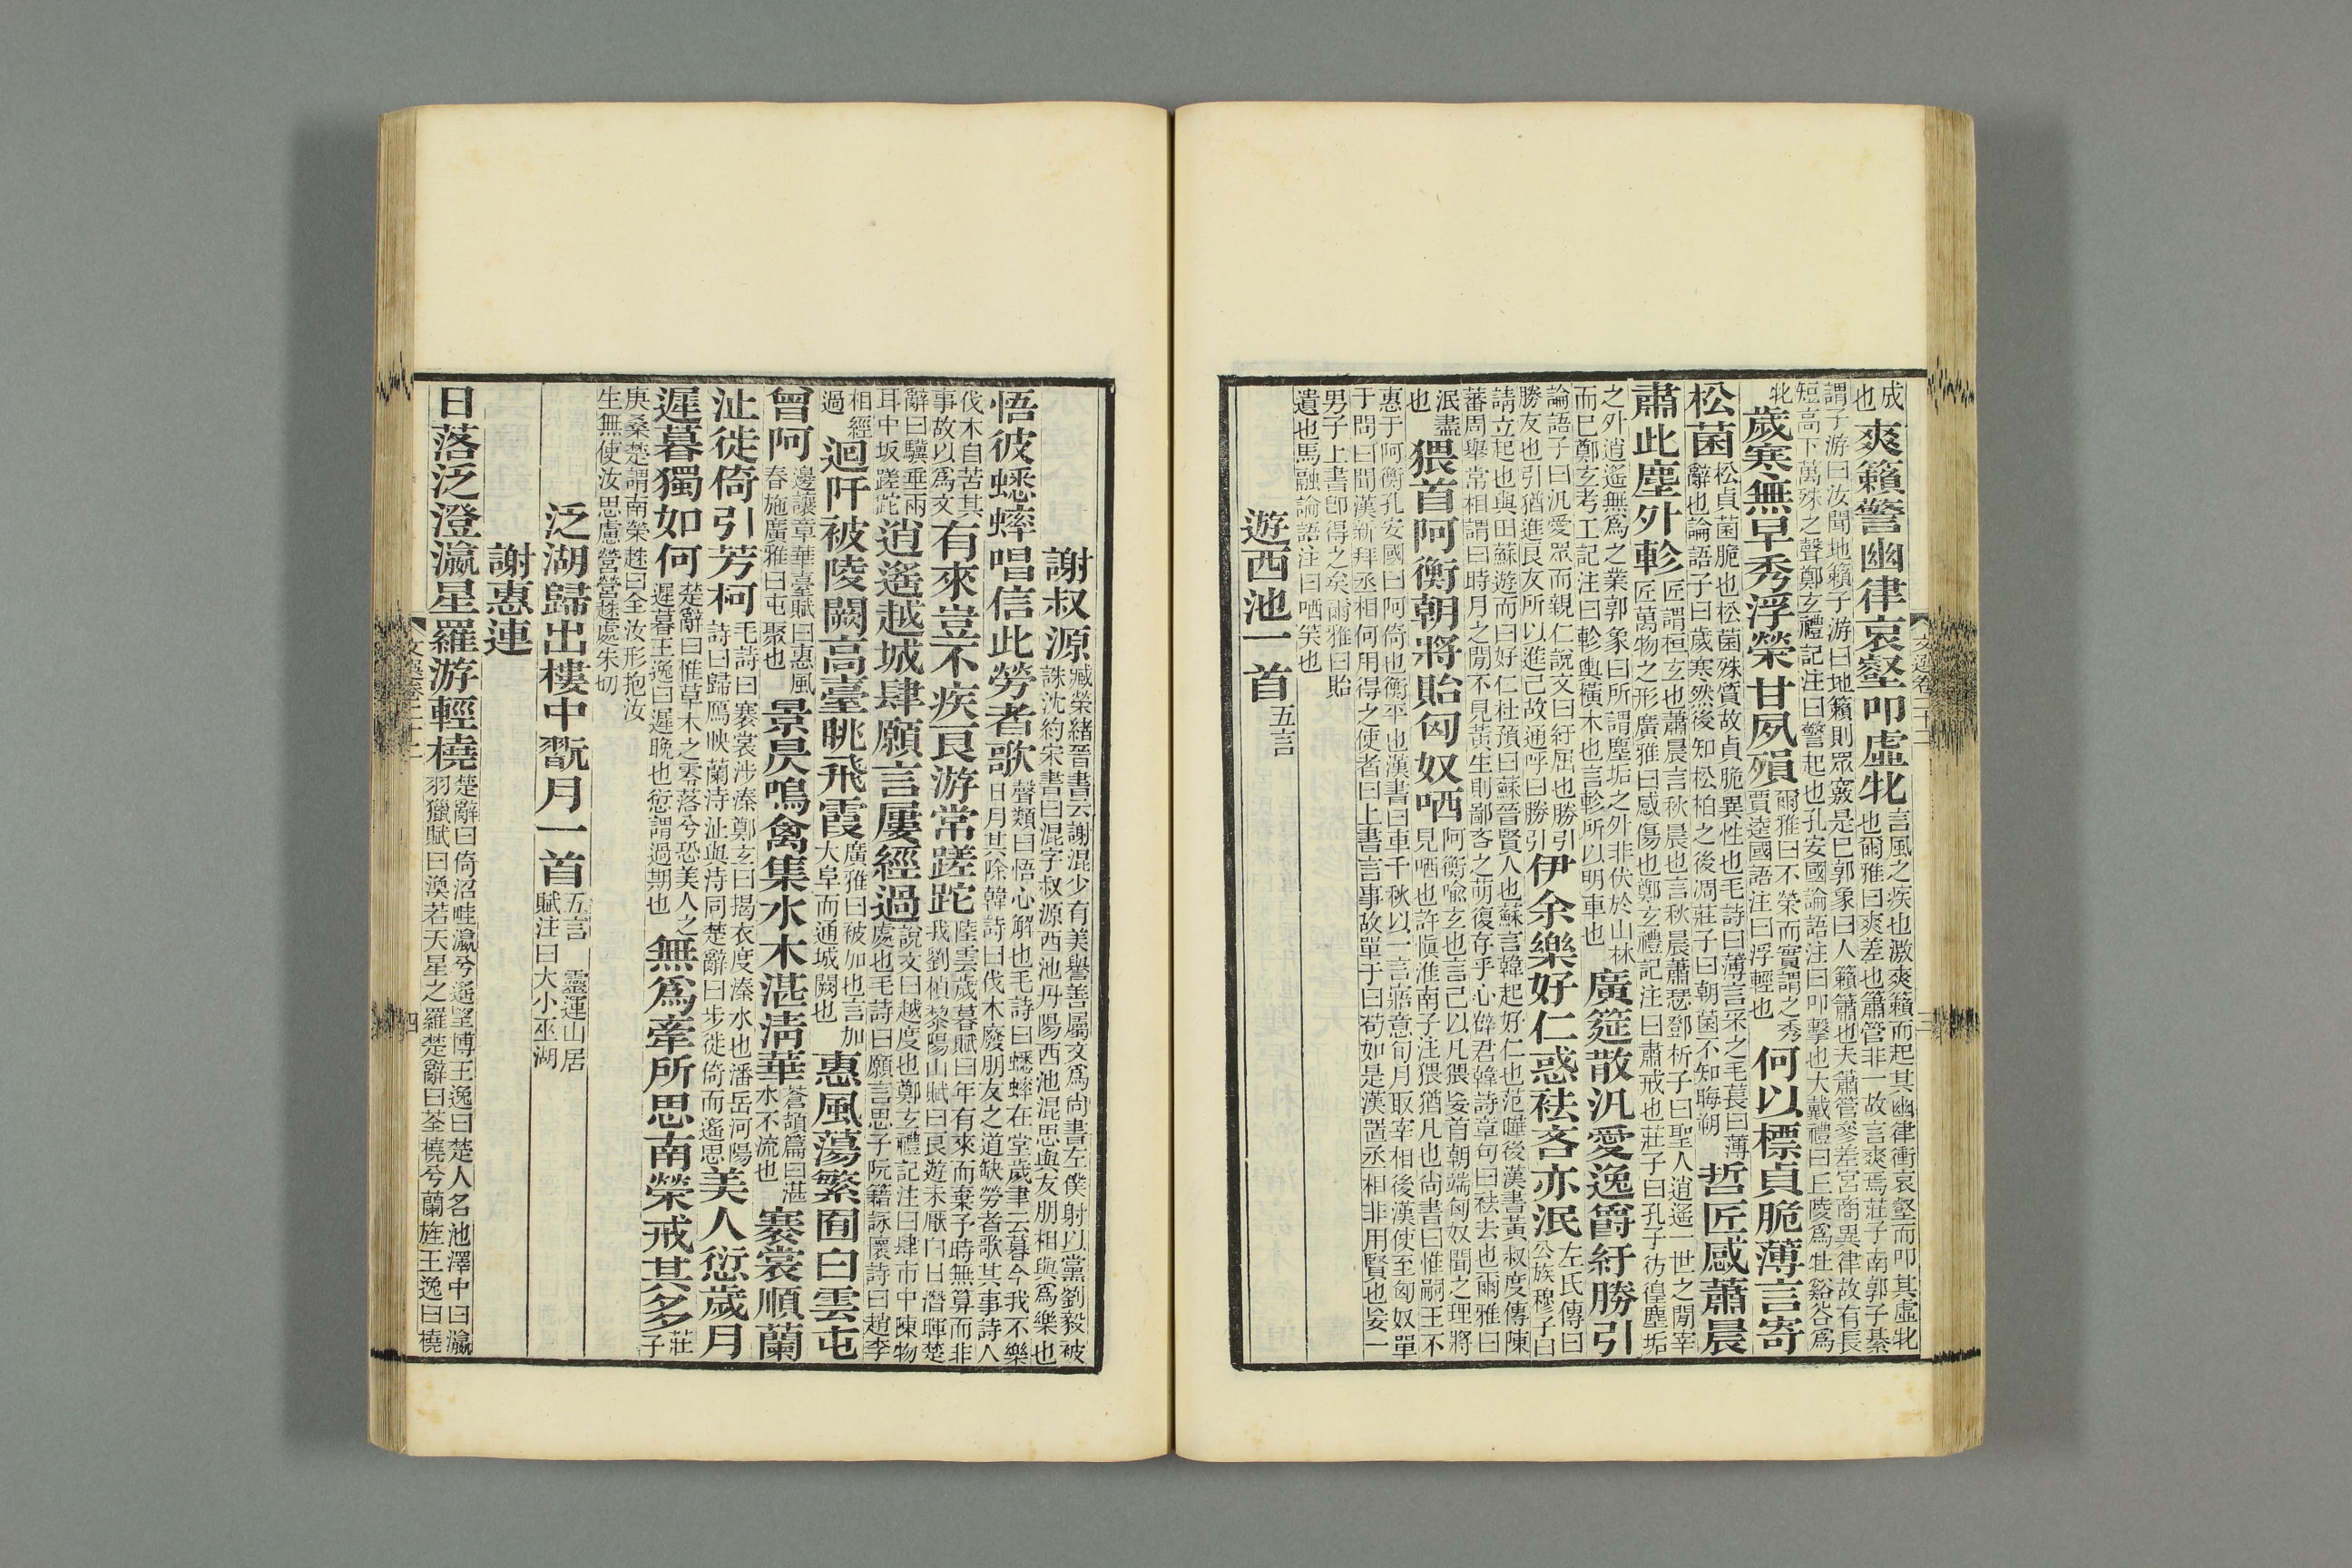 成也爽籟警幽律哀壑叩虛牝言風之疾也激爽籟而起其幽律衝哀壑而叩其虛牝也爾雅曰爽差也簫管非一故言爽焉莊子南郭子綦
謂子游曰汝聞地籟子游曰地籟則眾竅是已郭象曰人籟簫也夫簫管參差宮商異律故有長短高下萬殊之聲鄭玄禮記注曰警起也孔安國論語注曰叩擊也大戴禮曰丘陵為牡谿谷為
牝歲寒無早秀浮榮甘夙殞爾雅曰不榮而實謂之秀賈逵國語注曰浮輕也何以標貞脆薄言寄
松菌松貞菌脆也松菌殊質故貞脆異性也毛詩曰薄言采之毛萇曰薄辭也論語子曰歲寒然後知松柏之後凋莊子曰朝菌不知晦朔哲匠感蕭晨
肅此塵外軫匠謂桓玄也蕭晨言秋晨也言秋晨蕭瑟鄧析子曰聖人逍遙一世之閒宰匠萬物之形廣雅曰感傷也鄭玄禮記注曰肅戒也莊子曰孔子彷徨塵垢
之外逍遙無為之業郭象曰所謂塵垢之外非伏於山林而已鄭玄考工記注曰軫輿橫木也言軫所以明車也廣筵散汎愛逸爵紆勝引
論語子曰汎愛眾而親仁說文曰紆屈也勝引勝友也引猶進良友所以進己故通呼曰勝引伊余樂好仁惑祛吝亦泯左氏傳曰公族穆子曰
請立起也與田蘇遊而曰好仁杜預曰蘇晉賢人也蘇言韓起好仁也范曄後漢書黃叔度傳陳蕃周舉常相謂曰時月之閒不見黃生則鄙吝之萌復存乎心薛君韓詩章句曰祛去也爾雅曰
泯盡也猥首阿衡朝將貽匈奴哂阿衡喻玄也言己以凡猥妄首朝端匈奴聞之理將見哂也許愼淮南子注猥猶凡也尚書曰惟嗣王不
惠于阿衡孔安國曰阿倚也衡平也漢書曰車千秋以一言寤意旬月取宰相後漢使至匈奴單于問曰聞漢新拜丞相何用得之使者曰上書言事故單于曰苟如是漢置丞相非用賢也妄一
男子上書卽得之矣爾雅曰貽遺也馬融論語注曰哂笑也
遊西池一首五言
謝叔源臧榮緒晉書云謝混少有美譽善屬文為尚書左僕射以黨劉毅被誅沈約宋書曰混字叔源西池丹陽西池混思與友朋相與為樂也
悟彼蟋蟀唱信此勞者歌聲類曰悟心解也毛詩曰蟋蟀在堂歲聿云暮今我不樂日月其除韓詩曰伐木廢朋友之道缺勞者歌其事詩人
伐木自苦其事故以為文有來豈不疾良游常蹉跎陸雲歲暮賦曰年有來而棄予時無算而非我劉楨黎陽山賦曰良遊未厭白日潛暉楚
辭曰驥垂兩耳中坂蹉跎逍遙越城肆願言屢經過說文曰越度也鄭玄禮記注曰肆市中陳物處也毛詩曰願言思子阮籍詠懷詩曰趙李
相經過迴阡被陵闕高臺眺飛霞廣雅曰被加也言加大阜而通城闕也惠風蕩繁囿白雲屯
曾阿邊讓章華臺賦曰惠風春施廣雅曰屯聚也景昃鳴禽集水木湛淸華蒼頡篇曰湛水不流也褰裳順蘭
沚徙倚引芳柯毛詩曰褰裳涉溱鄭玄曰揭衣度溱水也潘岳河陽詩曰歸鴈映蘭洔沚與洔同楚辭曰步徙倚而遙思美人愆歲月
遲暮獨如何楚辭曰惟草木之零落兮恐美人之遲暮王逸曰遲晚也愆謂過期也無為牽所思南榮戒其多莊子
庚桑楚謂南榮趎曰全汝形抱汝生無使汝思慮營營趎處朱切
泛湖歸出樓中翫月一首五言 靈運山居賦注曰大小巫湖
謝惠連
日落泛澄瀛星羅游輕橈楚辭曰倚沼畦瀛兮遙望博王逸曰楚人名池澤中曰瀛羽獵賦曰渙若天星之羅楚辭曰荃橈兮蘭旌王逸曰橈
文選卷二十二
三
四